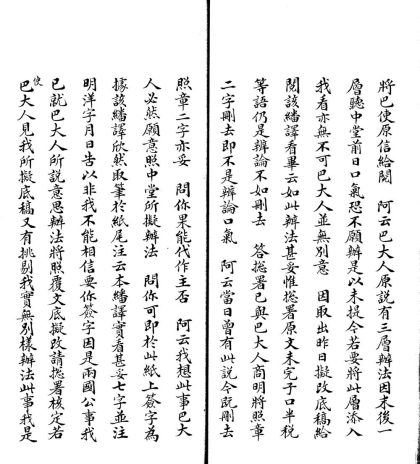 將巴使原信給閱　阿云巴大人原說有三層辦法因末後一
層聽中堂前日口氣恐不願辦是以未提今若要將此層添入
我看亦無不可巴大人並無別意　因取出昨日擬改底稿給
閱該繙譯看畢云如此辦法甚妥惟總署原文未完子口半稅
等語仍是辯論不如刪去　答總署已與巴大人商明將照章
二字刪去即不是辯論口氣　阿云當日曾有此說今既刪去
照章二字亦妥　問你果能代作主否　阿云我想此事巴大
人必然願意照中堂所擬辦法　問你可即於此紙上簽字為
據該繙譯欣然取筆於紙尾注云本繙譯實看甚妥七字並注
明洋字月日告以非我不能相信要你簽字因是兩國公事我
已就巴大人所說意思辦法將照覆文底擬改請總署核定若
使
巴大人見我所擬底稿又有挑剔我實無別樣辦法此事我是